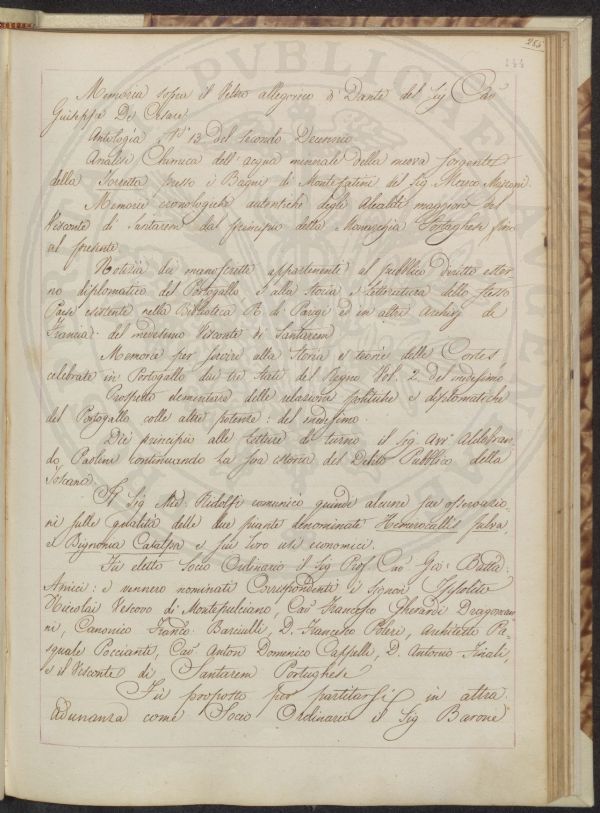 255
144
Memoria sopra il Veltro allegorico di Dante del Sig Cav
Guiseppe De Cesare
Antologia N° 13 del Secondo Decennio
Analisi Chimica dell'acqua minerale della nuova Sorgente
della Torretta presso i Bagni di Montecatini del Sig. Marco
Memorie cronologiche autentiche degli Alcaldi maggiori del
Visconte di Santarem dal principio della Monarchia Portoghese fino
al presente
Notizia dei manoscritti appartenenti al pubblico diritto ester
no diplomatico del Portogallo e alla Storia e Letteratura dello stesso
Paese esistente nella Biblioteca R. di Parigi ed in altri Archivj di
Francia: del medesimo Visconte di Santarem
Memorie per servire alla Storia e teorie delle Cortes
celebrate in Portogallo dai tre Stati del Regno Vol. 2. del medesimo
Prospetto elementare delle relazioni politiche e diplomatiche
del Portogallo colle altre potenze: del medesimo.
Diè principio alle Letture di turno il Sig. Avv. Aldobran
do Paolini continuando la sua istoria del Debito Pubblico della
Toscana
Il Sig. Mse. Ridolfi comunicò quindi alcune sue osservazio
ni sulle qualità delle due piante denominate Hemerocallis fulva
e Bignonia Catalpa e sui loro usi economici.
Fu eletto Socio Ordinario il Sig Prof. Cav. Gio: Batta:
Amici: e vennero nominati Corrispondenti i Signori Ippolito
Niccolai Vescovo di Montepulciano, Cav. Francesco Gherardi Dragoman
ni, Canonico Franco: Barciulli, D. Francesco Poleri, Architetto Pa=
squale Poccianti, Cav. Anton Domenico Cappelli, D. Antonio Finali,
e il Visconte di Santarem Portoghese
Fu proposto per partitarsi in altra
Adunanza come Socio Ordinario il Sig Barone